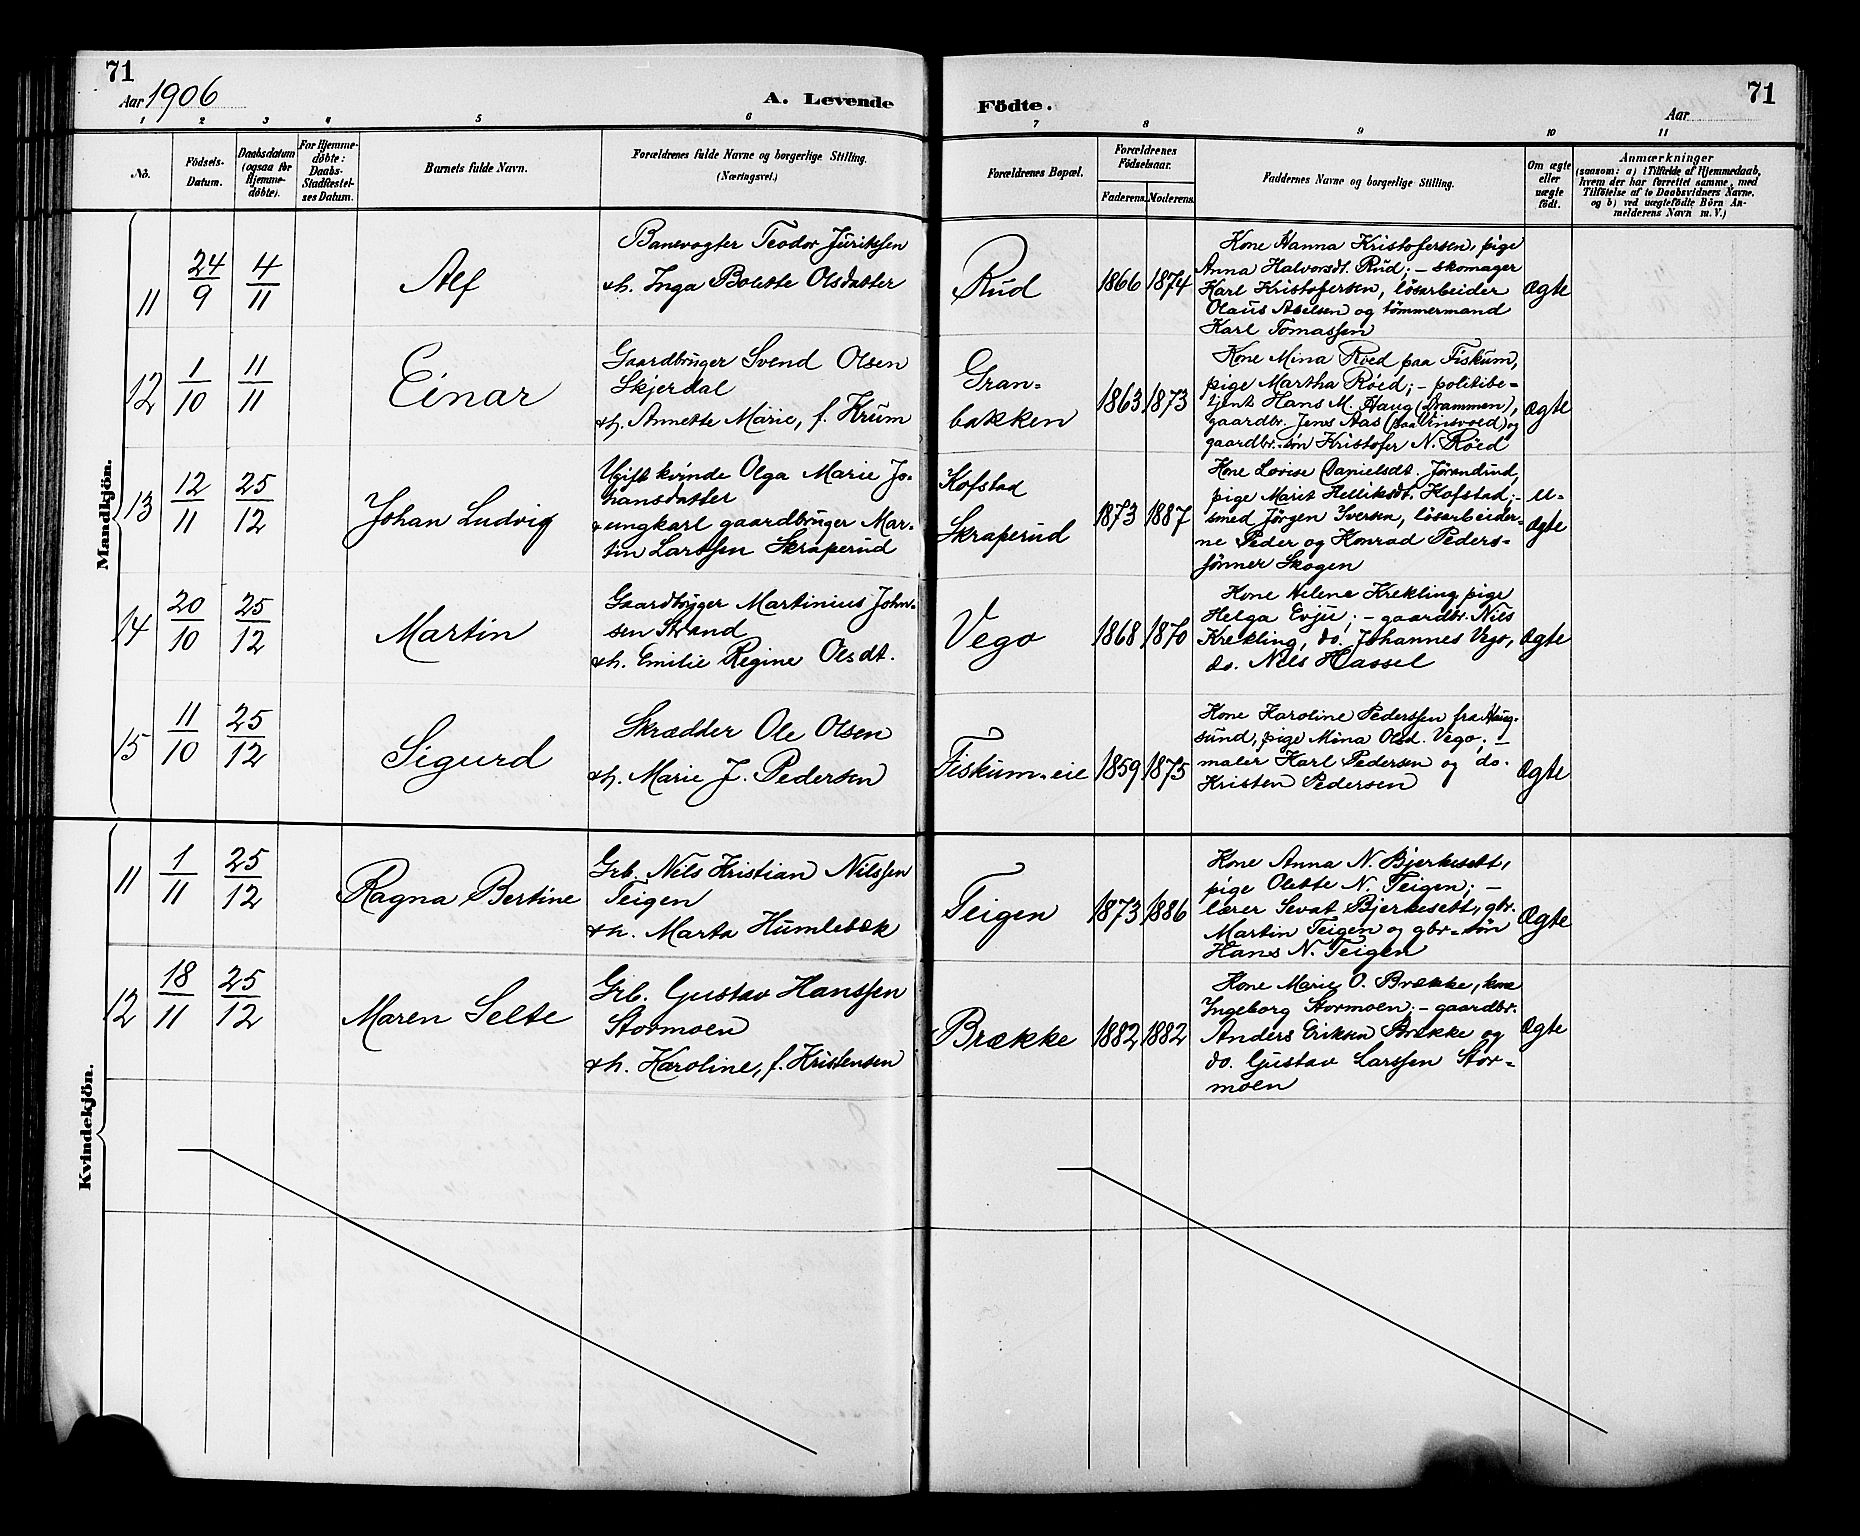 71
Aar 1906
A. Levende
Födte.
71
Aar
1 2 3 4 5 6 7 8 9 10 11
No.
Födsels-
Datum.
Daabsdatum
(ogsaa for
Hjemme-
døbte).
For Hjemme-
døbte:
Daabs-
Stadfæstel-
ses Datum.
Barnets fulde Navn.
Forældrenes fulde Navne og borgerlige Stilling.
(Næringsvei.)
Forældrenes Bopæl.
Forældrenes
Födselsaar.
Faderens. Moderens.
Faddernes Navne og borgerlige Stilling.
Om ægte
eller
uægte
födt.
Anmærkninger
(saasom: a) i Tilfælde af Hjemmedaab,
hvem der har forrettet samme, med
Tilföielse af to Daabsvidners Navne.
og b) ved uægtefödte Börn An-
melderens Navn m. V.)
Mandkjön.
11
24/9
4/11
Alf
Banevogter Teodor Jurikssen
& h. Inga Bolette Olsdatter
Rud
1866 1874
Kone Hanna Kristofersen, pige
Anna Halvorsdt. Rud; – skomager
Karl Kristofersen, lösarbeider
Olaus Abelsen og tömmermand
Karl Tomassen
Ægte
12
1/10
11/11
Einar
Gaardbruger Svend Olsen
Skjerdal
& h. Annette Marie, f. Krum
Gran-
bakken
1863 1873
Kone Mina Röed paa Fiskum,
pige Martha Röed; – politibe-
tjent Hans M. Haug (Drammen),
gaardbr. Jens Aas (paa Vinsvold) og
gaardbr.-sön Kristofer N. Röed
Ægte
13
12/11
25/12
Johan Ludvig
Ugift kvinde Olga Marie Jo-
hansdatter
& ungkarl gaardbruger Mar-
tin Larssen Skraperud
Kofstad
Skraperud
1873 1887
Kone Lovise Danielsdt. Jörandrud,
pige Marit Helliksdt. Kofstad; –
smed Jörgen Iversen, lösarbeider-
ne Peder og Konrad Peders-
sönner Skogen
U-
ægte
14
20/10
25/12
Martin
Gaardbruger Martinius John-
sen Strand
& h. Emilie Regine Olsdt.
Vego
1868 1870
Kone Helene Krekling, pige
Helga Evju; – gaardbr. Nils
Krekling, do. Johannes Vego,
do. Nils Hassel
Ægte
15
11/10
25/12
Sigurd
Skrædder Ole Olsen
& h. Marie J. Pedersen
Fiskum-eie
1859 1875
Kone Karoline Pederssen fra Haug-
sund, pige Mina Olsd. Vego; –
maler Karl Pedersen og do.
Kristen Pedersen
Ægte
Kvindekjön.
11
1/11
25/12
Ragna Bertine
Grb. Nils Kristian Nilssen
Teigen
& h. Marta Humlebæk
Teigen
1873 1886
Kone Anna N. Bjerkesett,
pige Olette N. Teigen; –
lærer Sevat Bjerkesett, gbr.
Martin Teigen og gbr-sön
Hans N. Teigen
Ægte
12
18/11
25/12
Maren Selte
Grb. Gustav Hanssen
Stormoen
& h. Karoline, f. Kristensen
Brække
1882 1882
Kone Marie O. Brække, kone
Ingeborg Stormoen; – gaardbr.
Anders Eriksen Brække og
do. Gustav Larssen Stor-
moen
Ægte